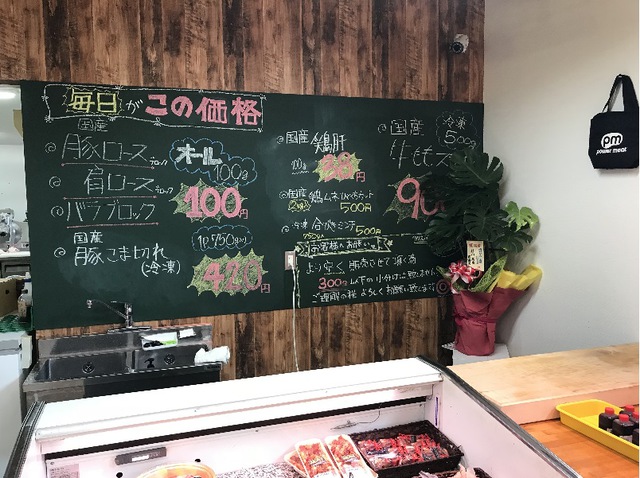 毎日がこの価格
国産
◎豚ロースブロック
◎肩ロースブロック
◎バラブロック
オール
100g
100円
国産
◎豚こま切れ
(冷凍)
1P750g
420円
◎国産 鶏肝
100g
38円
◎国産 鶏ムネ
2kg
500円
◎冷凍 合びきミンチ
500円
お客様へお願い
より安く販売させて頂く為
300g以下の小分けは
ご理解の程よろしくお願い致します
◎国産
牛もも
冷凍
500g
pm
power meat